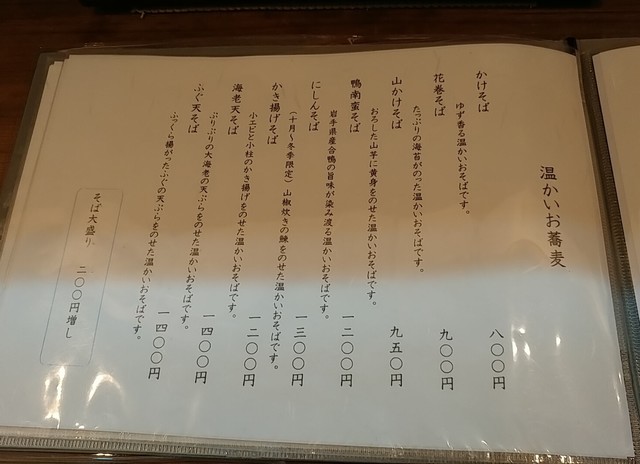 温かいお蕎麦
かけそば 八〇〇円
ゆず香る温かいおそばです。
花巻そば 九〇〇円
たっぷりの海苔がのった温かいおそばです。
山かけそば 九五〇円
おろした山芋に黄身をのせた温かいおそばです。
鴨南蛮そば 一二〇〇円
岩手県産合鴨の旨味が染み渡る温かいおそばです。
にしんそば 一三〇〇円
(十月～冬季限定) 山椒炊きの鰊をのせた温かいおそばです。
かき揚げそば 一二〇〇円
小エビと小柱のかき揚げをのせた温かいおそばです。
海老天そば 一四〇〇円
ぷりぷりの大海老の天ぷらをのせた温かいおそばです。
ふぐ天そば 一四〇〇円
ふっくら揚がったふぐの天ぷらをのせた温かいおそばです。
そば大盛り 二〇〇円増し